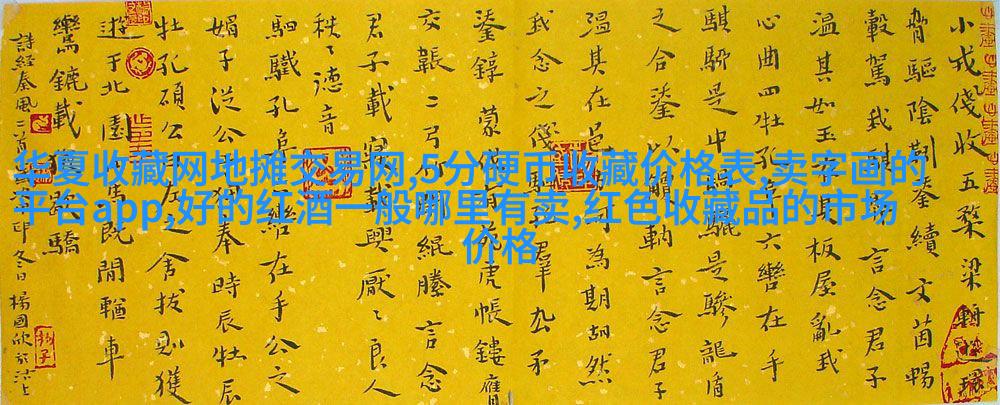 华夏收藏网地摊交易网,5分硬币收藏价格表,卖字画的
平台app,好的红酒一般哪里有卖,红色收藏品的市场
价格
小戎俴收五楘梁輈
脅驅陰靷鋈續文茵暢
轂駕我騏言念君子
溫其如玉在其板屋亂我
心曲四牡孔阜六轡在手
騏駵是中騧驪是驂龍盾
之合鋈以觼軜言念君子
溫其在邑方何為期胡然
我念之俴駟孔羣厹矛
鋈錞蒙伐有苑虎帳鏤膺
交韔二弓竹閉緄縢言念
君子載寢載興厭〻良人
秩〻德音
駟驖孔阜六轡在手公之
媚子從公于狩奉時辰牡辰
牡孔碩公曰左之舍拔則獲
遊于北園四馬既閒輶車
鸞鑣載獫歇驕
詩經秦風二首 印冬日楊國欣於